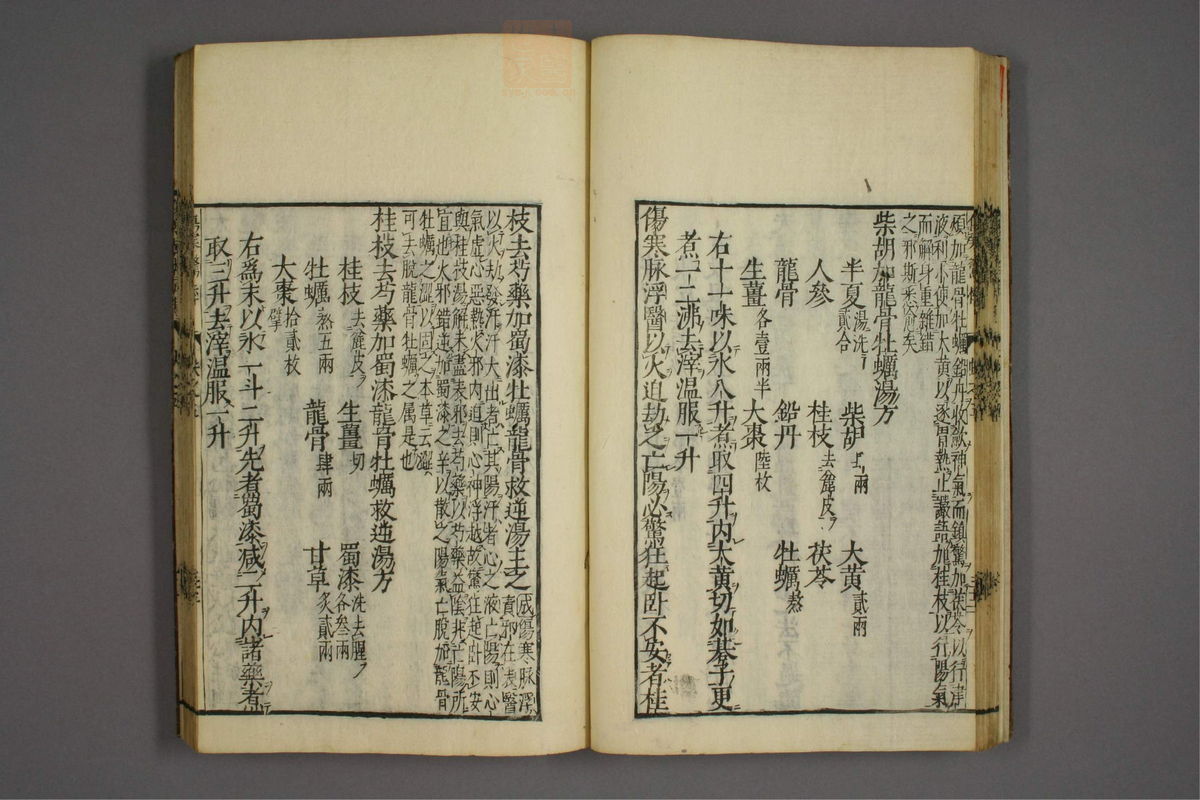 煩加龍骨牡蠣鉛丹收歛神氣而鎮驚加茯苓以行津
液利小便加大黄以逐胃熱止讝語加桂枝以行陽氣
而解身重錯雜
之邪斯悉愈矣
柴胡加龍骨牡蠣湯方
半夏貳合湯洗 柴胡 大黄貳兩
人參 桂枝去麄皮 茯苓
龍骨 鉛丹 牡蠣熬
生薑各壹兩半 大棗陸枚
右十一味以水八升煮取四升内大黄切如碁子更
煮一二沸去滓温服一升
傷寒脉浮醫以火迫劫之亡陽必驚狂起卧不安者桂
枝去芍藥加蜀漆牡蠣龍骨救逆湯主之
傷寒脉浮
責邪在表醫
以火劫發汗汗大出者亡其陽汗者心之液亡陽則心
氣虚心惡熱火邪内迫則心神浮越故驚狂起卧不安
與桂枝湯解未盡表邪去芍藥以芍藥益陰非亡陽所
宜也火邪錯逆加蜀漆之辛以散之陽氣亡脱加龍骨
牡蠣之澀以固之本草云澀
可去脱龍骨牡蠣之屬是也
桂枝去芍藥加蜀漆龍骨牡蠣救逆湯方
桂枝去麄皮 生薑切 蜀漆洗去腥各叁兩
牡蠣熬五兩 龍骨肆兩 甘草炙貳兩
大棗拾貳枚擘
右爲末以水一斗二升先煮蜀漆减二升内諸藥煮
取三升去滓温服一升